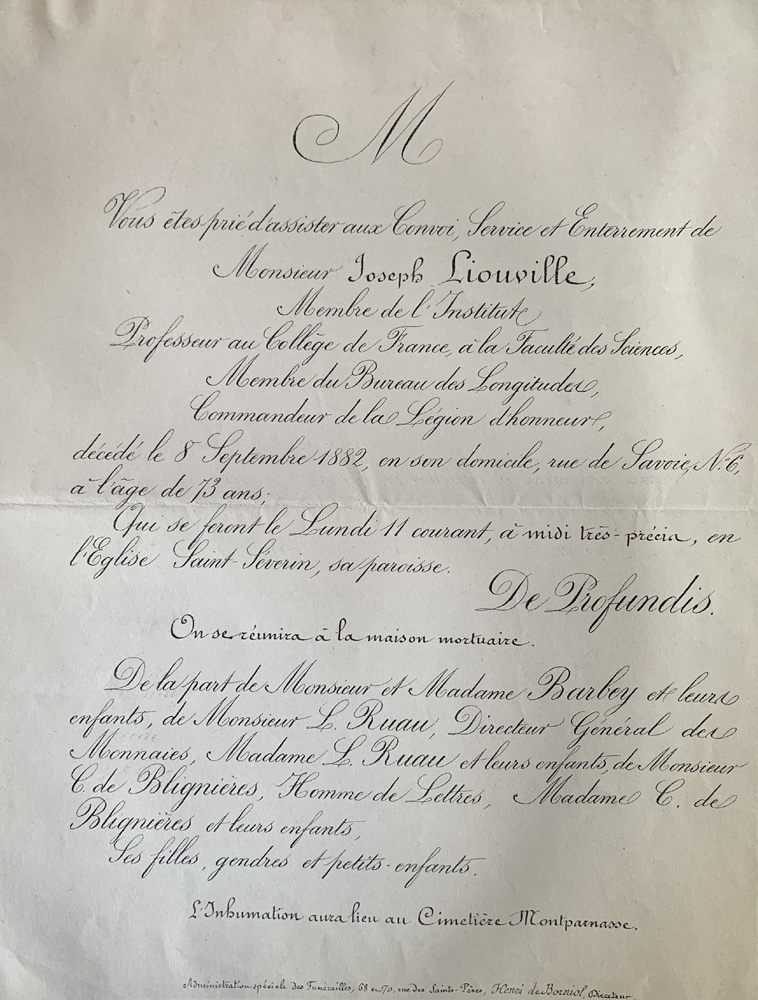 M
Vous êtes prié d'assister aux Convoi, Service et Enterrement de
Monsieur Joseph Liouville,
Membre de l'Institut,
Professeur au Collège de France, à la Faculté des Sciences,
Membre du Bureau des Longitudes,
Commandeur de la Légion d'honneur,
décédé le 8 Septembre 1882, en son domicile, rue de Savoie, N.6,
à l'âge de 73 ans;
Qui se feront le Lundi 11 courant, à midi très-précis, en
l'Eglise Saint-Séverin, sa paroisse.
De Profundis.
On se réunira à la maison mortuaire.
De la part de Monsieur et Madame Barbey et leurs
enfants, de Monsieur L. Ruau, Directeur Général des
Monnaies, Madame L. Ruau et leurs enfants, de Monsieur
C. de Blignières, Homme de Lettres, Madame C. de
Blignières et leurs enfants,
Ses filles, gendres et petits-enfants.
L'Inhumation aura lieu au Cimetière Montparnasse.
Administration spéciale des Funérailles, 68 et 70, rue des Saints-Pères, Henri de Borniol, Directeur